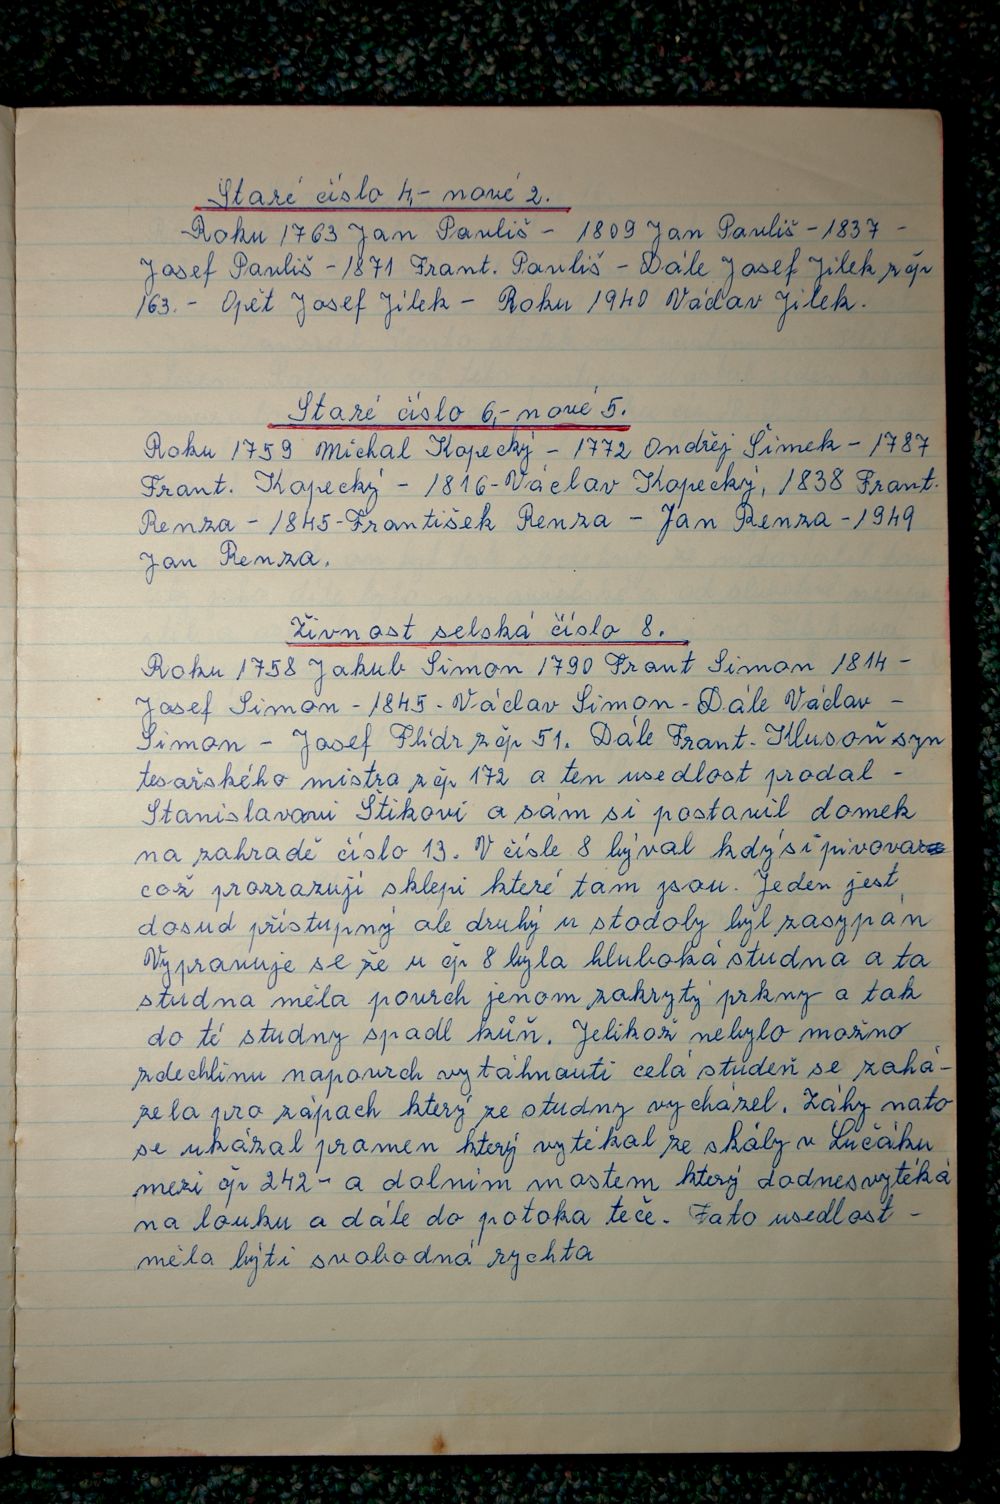 Staré číslo 4,- nové 2.
Roku 1763 Jan Pauliš - 1809 Jan Pauliš - 1837 -
Josef Pauliš - 1871 Frant. Pauliš - Dále Josef Jílek z čp
163. - Opět Josef Jílek - Roku 1940 Václav Jílek.
Staré číslo 6,- nové 5.
Roku 1759 Michal Kopecký - 1772 Ondřej Šimek - 1787
Frant. Kopecký - 1816 - Václav Kopecký, 1838 Frant.
Renza - 1845 - František Renza - Jan Renza - 1949
Jan Renza.
Živnost selská číslo 8.
Roku 1758 Jakub Simon 1790 Frant Simon 1814 -
Josef Simon - 1845 - Václav Simon - Dále Václav -
Simon - Josef Flídr z čp 51. Dále Frant. Klusoň syn
tesařského mistra z čp 172 a ten usedlost prodal -
Stanislavovi Štikovi a sám si postavil domek
na zahradě číslo 13. V čísle 8 býval kdýsi pivovar
což prozrazují sklepi které tam jsou. Jeden jest
dosud přístupný ale druhý u stodoly byl zasypán
Vypravuje se že u čp 8 byla hluboká studna a ta
studna měla povrch jenom zakrytý prkny a tak
do té studny spadl kůň. Jelikož nebylo možno
zdechlinu napovrch vytáhnouti celá studeň se zahá-
zela pro zápach který ze studny vycházel. Záhy nato
se ukázal pramen který vytékal ze skály v Lučáku
mezi čp 242 - a dolním mostem který dodnes vytéká
na louku a dále do potoka teče. Tato usedlost -
měla býti svobodná rychta